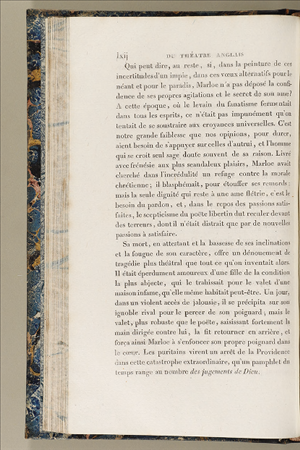 lxij DU THÉATRE ANGLAIS
Qui peut dire, au reste, si, dans la peinture de ces
incertitudes d'un impie, dans ces vœux alternatifs pour le
néant et pour le paradis, Marloe n'a pas déposé la confi-
dence de ses propres agitations et le secret de son ame?
A cette époque, où le levain du fanatisme fermentait
dans tous les esprits, ce n'était pas impunément qu'on
tentait de se soustraire aux croyances universelles. C'est
notre grande faiblesse que nos opinions, pour durer,
aient besoin de s'appuyer sur celles d'autrui, et l'homme
qui se croit seul sage doute souvent de sa raison. Livré
avec frénésie aux plus scandaleux plaisirs, Marloe avait
cherché dans l'incrédulité un refuge contre la morale
chrétienne; il blasphémait, pour étouffer ses remords:
mais la seule dignité qui reste à une ame flétrie, c'est le
besoin du pardon, et, dans le repos des passions satis-
faites, le scepticisme du poëte libertin dut reculer devant
des terreurs, dont il n'était distrait que par de nouvelles
passions à satisfaire.
Sa mort, en attestant et la bassesse de ses inclinations
et la fougue de son caractère, offre un dénouement de
tragédie plus théâtral que tout ce qu'on inventait alors.
Il était éperdument amoureux d'une fille de la condition
la plus abjecte, qui le trahissait pour le valet d'une
maison infame, qu'elle même habitait peut-être. Un jour,
dans un violent accès de jalousie, il se précipita sur son
ignoble rival pour le percer de son poignard, mais le
valet, plus robuste que le poëte, saisissant fortement la
main dirigée contre lui, la fit retourner en arrière, et
força ainsi Marloe à s'enfoncer son propre poignard dans
le cœur. Les puritains virent un arrêt de la Providence
dans cette catastrophe extraordinaire, qu'un pamphlet du
temps range au nombre des jugements de Dieu.